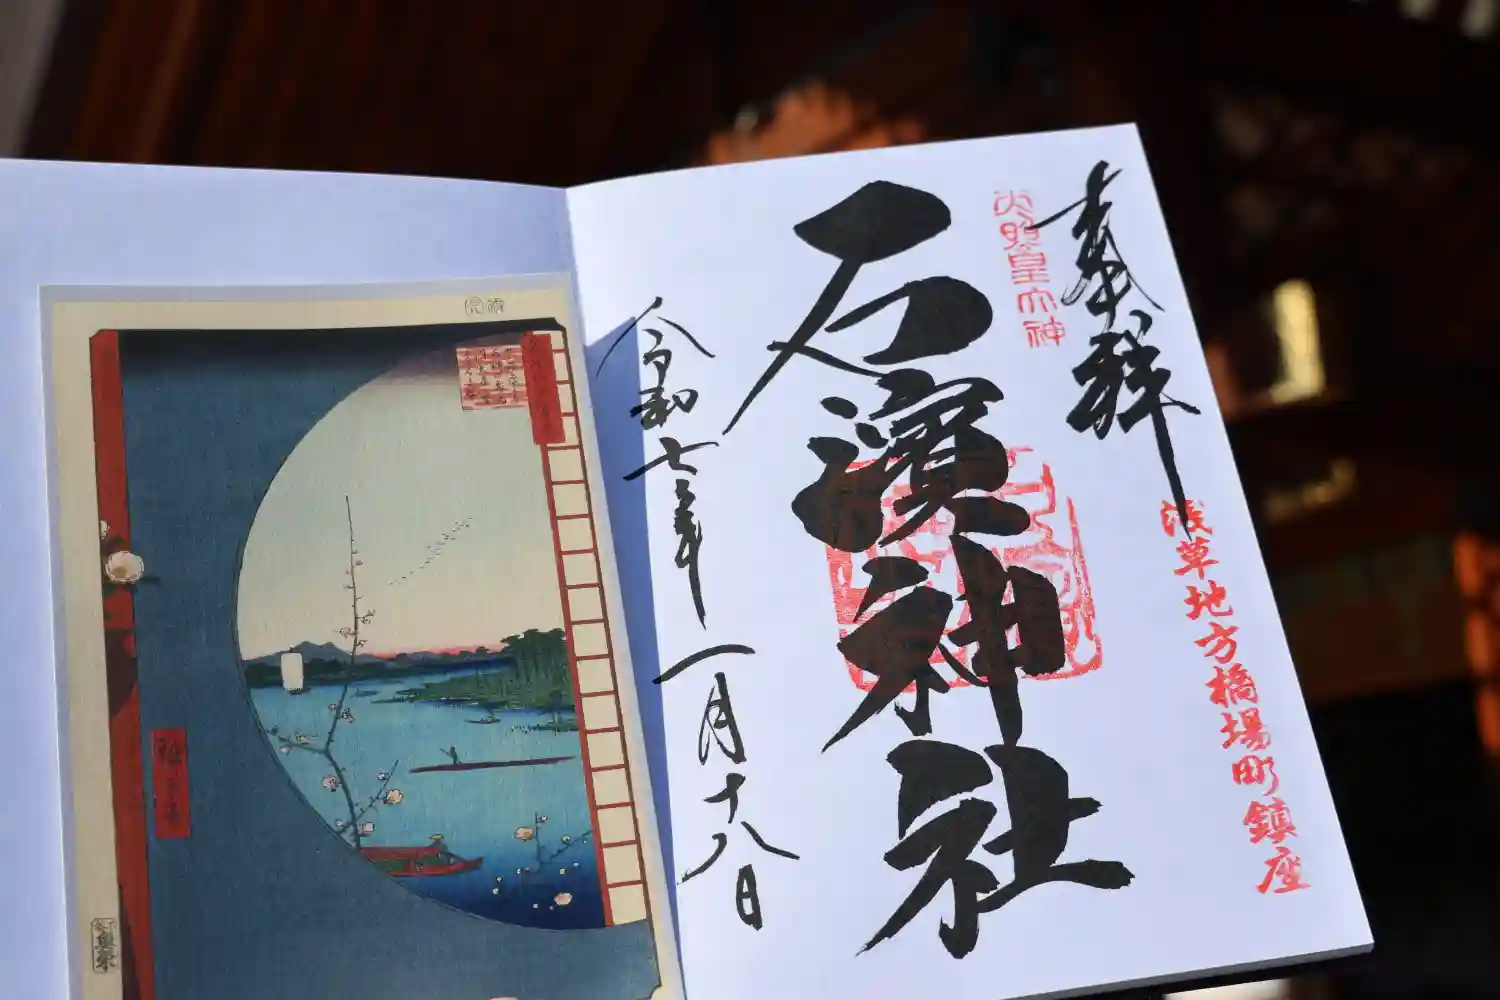 奉拝
浅草地方橋場町鎮座
天照皇大神
石濱神社
令和七年
一月十八日